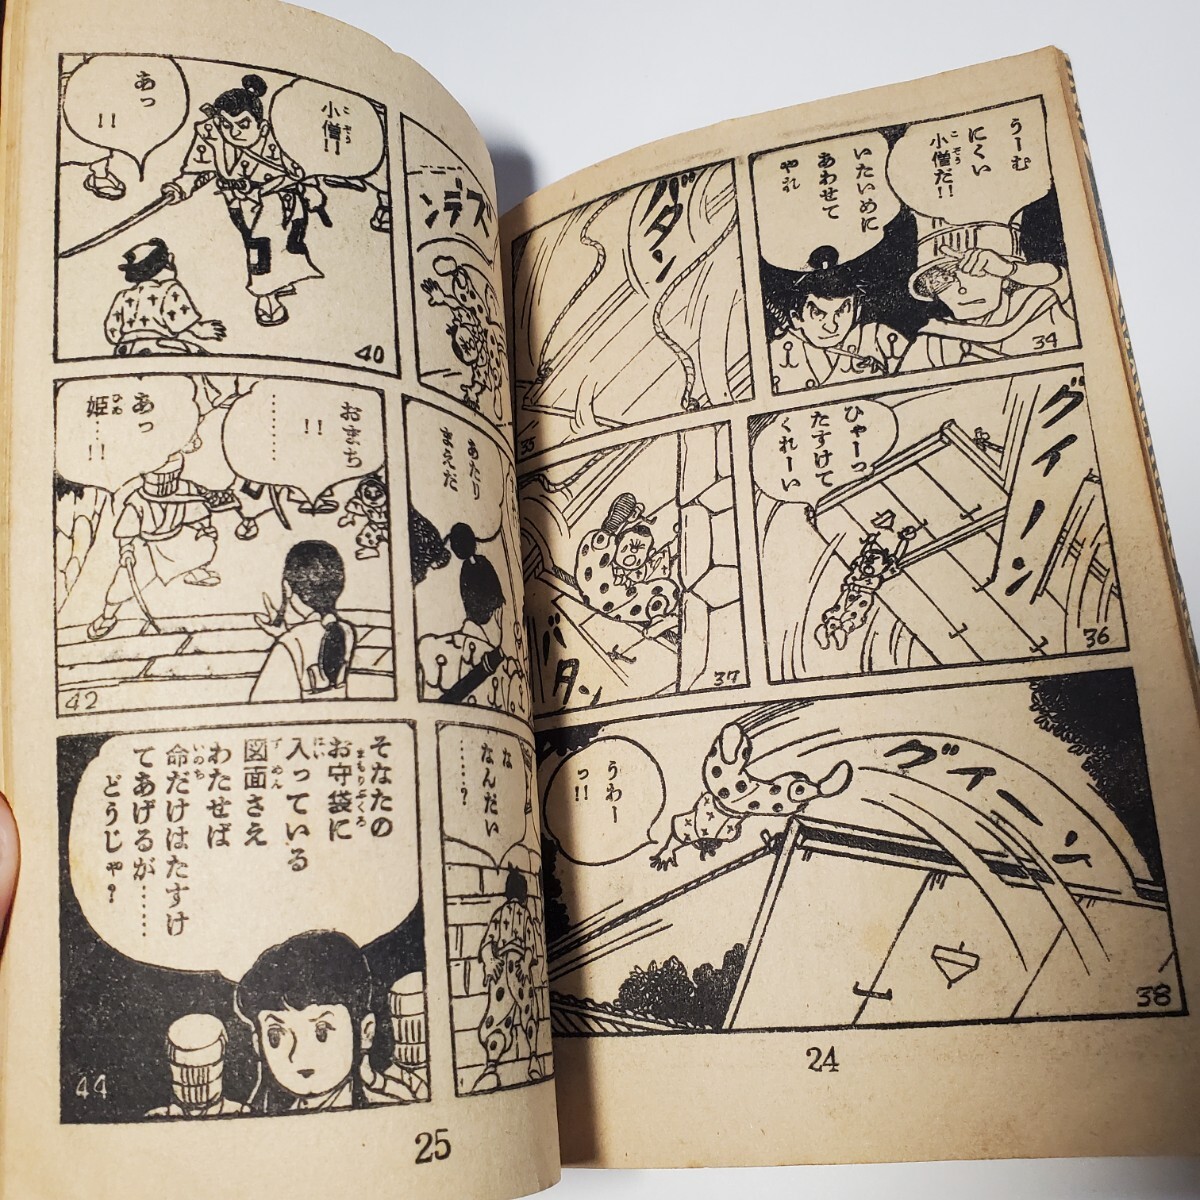 うーむ
にくい
小僧だ!!
こぞう
いたいめに
あわせて
やれ
34
バタン
35
グイーン
ひゃーっ
たすけて
くれーい
36
バタン
37
グイーン
うわー
っ!!
38
24
ズデン
小僧!!
こぞう
あっ
!!
40
あたり
まえだ
おまち
!!
………
あっ
姫…!!
ひめ
42
な
なんだい
……?
そなたの
お守袋に
まもりぶくろ
入っている
はい
図面さえ
ずめん
わたせば
命だけはたすけ
いのち
てあげるが……
どうじゃ?
44
25